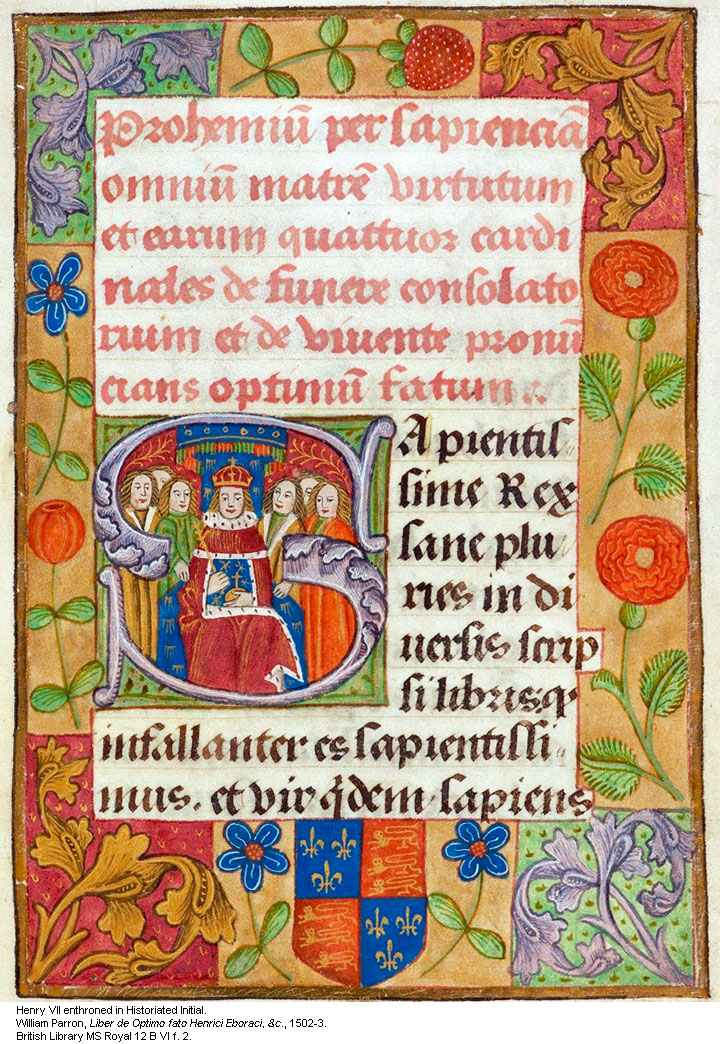 Prohemiū per sapienciā
omniū matrē virtutum
et earum quattuor cardi
nales de funere consolato
rium et de viuente pronū
cians optimū fatum
Sapientis
sime Rex
sane plu
ries in di
uersis scrip
si libris q̄
infallanter es sapientissi
mus. et vir q̄dem sapiens
Henry VII enthroned in Historiated Initial.
William Parron, Liber de Optimo fato Henrici Eboraci, &c., 1502-3.
British Library MS Royal 12 B VI f. 2.